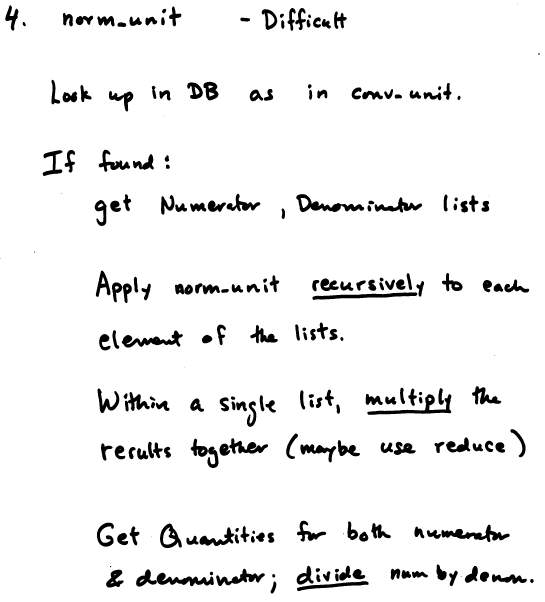 4. norm-unit - Difficult
Look up in DB as in conv-unit.
If found:
get Numerator, Denominator lists
Apply norm-unit recursively to each
element of the lists.
Within a single list, multiply the
results together (maybe use reduce)
Get Quantities for both numerator
& denominator; divide num by denom.